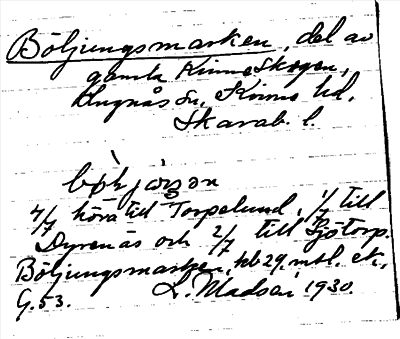 Böljungsmarken, del av
gamla Kinneskogen,
Lugnås sn, Kinne hd.
Skarab. l.
4/7 höra till Torpelund, 1/7 till
Dyrenäs och 2/7 till Sjötorp.
Böljungsmarken, kb 29, mtl. ek.
G. 53. L. Madsén 1930.